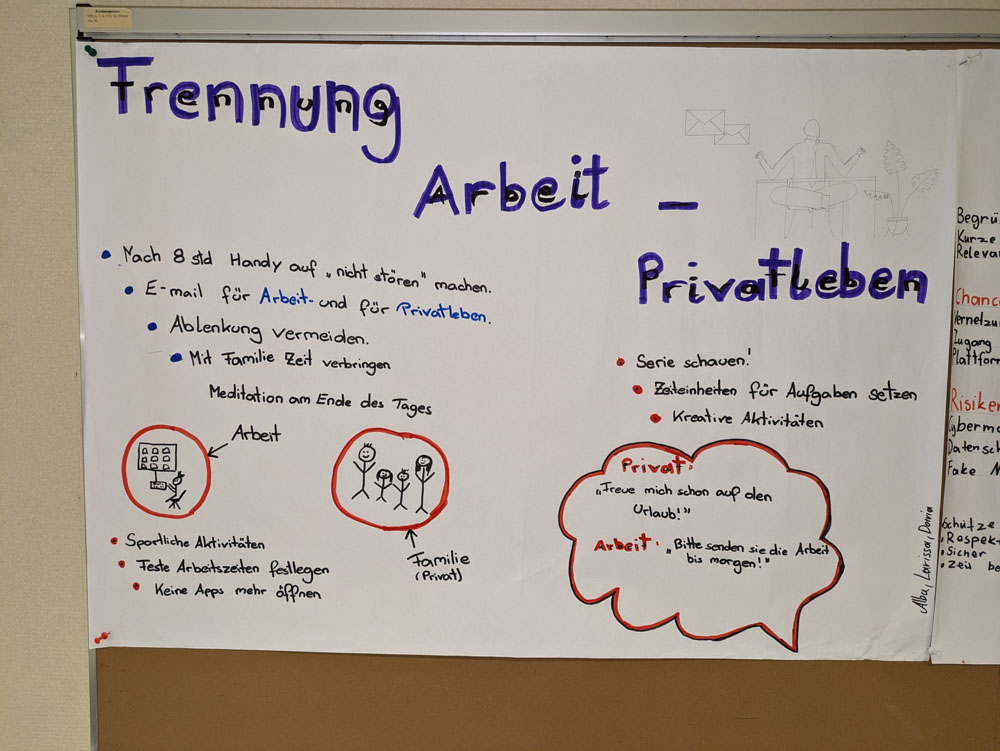 Trennung
Arbeit –
Privatleben
• Nach 8 std Handy auf „nicht stören" machen.
• E-mail für Arbeit- und für Privatleben.
• Ablenkung vermeiden.
• Mit Familie Zeit verbringen
Meditation am Ende des Tages
Arbeit
Familie
(Privat)
• Sportliche Aktivitäten
• Feste Arbeitszeiten festlegen
• Keine Apps mehr öffnen
• Serie schauen!
• Zeiteinheiten für Aufgaben setzen
• Kreative Aktivitäten
Privat:
„Freue mich schon auf den
Urlaub!"
Arbeit: „Bitte senden sie die Arbeit
bis morgen!"
Alba, Larissa,
Begrü
Kurze
Releva
Chanc
Vernetzu
Zugang
Plattfor
Risiker
Cybermo
Datensch
Fake N
Schütze
• Respek
• Sicher
• Zeit be